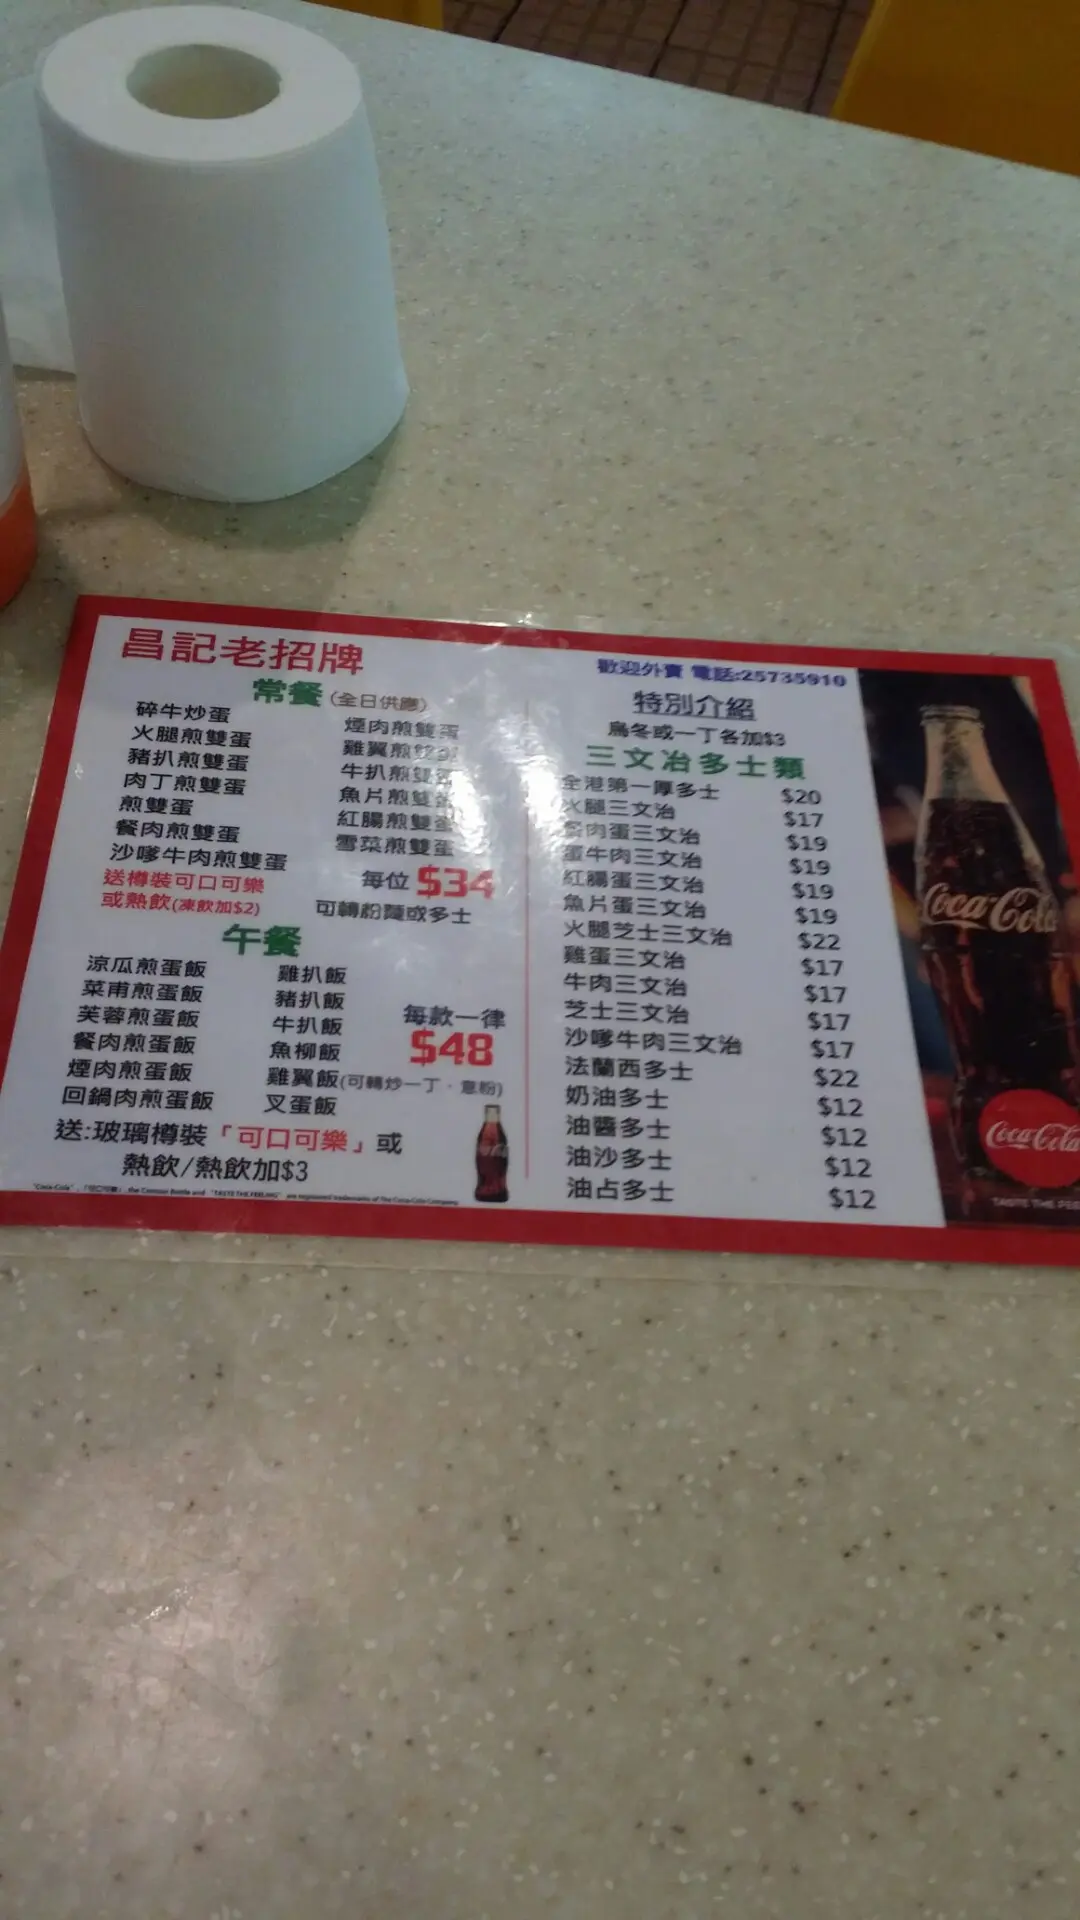 昌記老招牌
常餐(全日供應)
碎牛炒蛋
火腿煎雙蛋
豬扒煎雙蛋
肉丁煎雙蛋
煎雙蛋
餐肉煎雙蛋
沙嗲牛肉煎雙蛋
煙肉煎雙蛋
雞翼煎雙蛋
牛扒煎雙蛋
魚片煎雙蛋
紅腸煎雙蛋
雪菜煎雙蛋
送樽裝可口可樂
或熱飲(凍飲加$2)
每位 $34
可轉粉麵或多士
午餐
涼瓜煎蛋飯
菜甫煎蛋飯
芙蓉煎蛋飯
餐肉煎蛋飯
煙肉煎蛋飯
回鍋肉煎蛋飯
雞扒飯
豬扒飯
牛扒飯
魚柳飯
雞翼飯(可轉炒一丁，意粉)
叉蛋飯
每款一律
$48
送:玻璃樽裝「可口可樂」或
熱飲/熱飲加$3
歡迎外賣 電話:25735910
特別介紹
烏冬或一丁各加$3
三文治多士類
全港第一厚多士 $20
火腿三文治 $17
餐肉蛋三文治 $19
蛋牛肉三文治 $19
紅腸蛋三文治 $19
魚片蛋三文治 $19
火腿芝士三文治 $22
雞蛋三文治 $17
牛肉三文治 $17
芝士三文治 $17
沙嗲牛肉三文治 $17
法蘭西多士 $22
奶油多士 $12
油醬多士 $12
油沙多士 $12
油占多士 $12
Coca-Cola
Coca-Cola
TASTE THE FEE